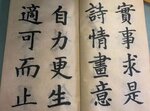 實事求是
詩情畫意
自力更生
適可而止